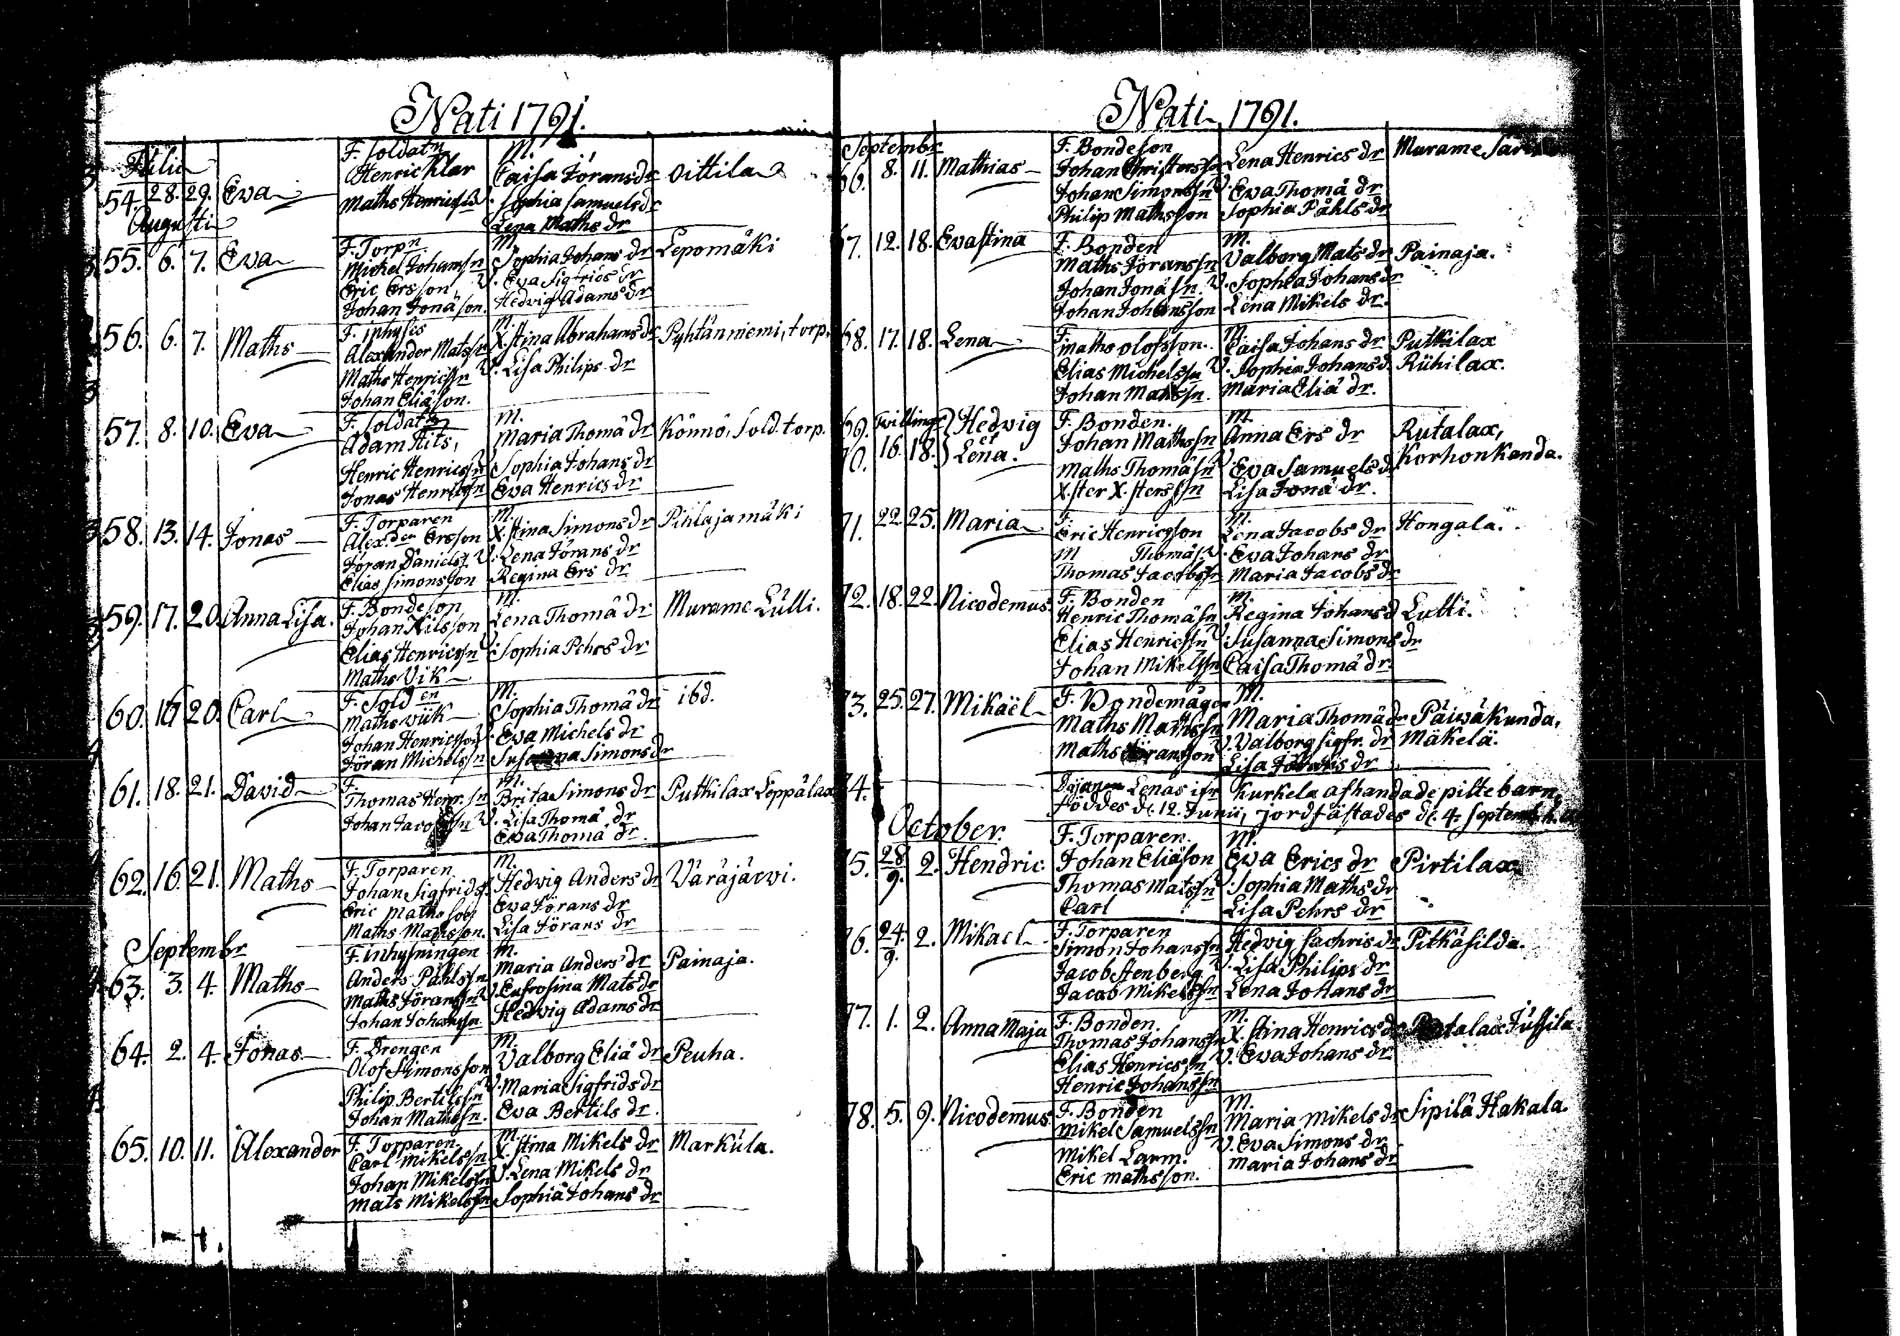 Nati 1791.
Julii
F. Soldatn M.
Henric Klar Caisa Jöransdr Oittila
54. 28. 29. Eva
Maths Henricss V. Sophia Samuelsdr
Lena Maths dr
Augusti
F. Torpn M.
55. 6. 7. Eva Michel Johanssn Sophia Johans dr Lepomäki
Eric Ersson V. Eva Sigfrids dr
Johan Jonä son. Hedvig Adams dr
F. inhyses M.
56. 6. 7. Maths Alexander Matssn X.stina Abrahams dr Pyhtänniemi, torp.
Maths Henricssn V. Lisa Philips dr
Johan Eliäson.
F. Soldatn M.
57. 8. 10. Eva Adam Hits, Maria Thomä dr Könnö, Sold. torp.
Henric Henricssn V. Sophia Johans dr
Jonas Henricssn Eva Henrics dr
F. Torparen M.
58. 13. 14. Jonas Alex:den Ersson X.stina Simons dr Pihlajamäki
Jöran Daniels. V. Lena Jörans dr
Elias Simonsson Regina Ers dr
F. Bondeson M.
59. 17. 20. Anna Lisa. Johan Nilsson Lena Thomä dr Murame Lülli.
Elias Henricssn V. Sophia Pehrs dr
Maths Vik
F. Solden M.
60. 16 20. Carl Maths Wiik Sophia Thomä dr ibd.
Johan Henricsson V. Eva Michels dr
Jöran Michelssn Susanna Simons dr
F. M.
61. 18. 21. David Thomas Henr. sn Brita Simons dr Putkilax Leppälax
Johan Jacobssn V. Lisa Thomä dr
Eva Thomä dr.
F. Torparen M.
62. 16. 21. Maths Johan Sigfrids. Hedvig Anders dr Väräjärvi.
Eric Maths son Eva Jörans dr
Maths Mathsson. Lisa Jörans dr
Septembr
F. inhysningen M.
63. 3. 4. Maths Anders Påhlssn Maria Anders dr Painaja.
Maths Jöranssn V. Eufrosina Mats dr
Johan Johanssn Hedvig Adams dr
F. Drengen M.
64. 2. 4. Jonas Olof Simonsson Valborg Eliä dr Peuha.
Philip Bertilssn V. Maria Sigfrids dr
Johan Mathssn. Eva Bertils dr.
F. Torparen M.
65. 10. 11. Alexander Carl Mikelssn X.stina Mikels dr Markula.
Johan Mikelssn V. Lena Mikels dr
Mats Mikelssn Sophia Johans dr
Nati 1791.
Septembr
F. Bondeson
66. 8. 11. Mathias Johan Christerssn Lena Henrics dr Murame
Johan Simonssn V. Eva Thomä dr
Philip Mathsson Sophia Påhls dr
F. Bonden M.
67. 12. 18. Evastina Maths Jöranssn Valborg Mats dr Painaja.
Johan Jonä sn. V. Sophia Johans dr
Johan Johansson Lena Mikels dr.
F. M.
68. 17. 18. Lena Maths Olofsson. Caisa Johans dr Putkilax
Elias Michelssn V. Sophia Johans d. Rühilax.
Johan Matssn. Maria Eliä dr.
69. Twilling Hedvig F. Bonden. M.
16. 18. et Johan Mathssn Anna Ers dr Rutalax,
70. Lena. Maths Thomä sn V. Eva Samuels d Korhonkanda.
X.ster X.sterssn Lisa Jonä dr.
F. M.
71. 22. 25. Maria Eric Henricsson Lena Jacobs dr Hongala.
M Thomäs V. Eva Johans dr
Thomas Jacobssn Maria Jacobs dr
F. Bonden M.
72. 18. 22. Nicodemus. Henric Thomä sn Regina Johans d Lutti.
Elias Henricssn V. Susanna Simons dr
Johan Mikelssn Caisa Thomä dr.
F. Bondemågen M.
73. 25. 27. Mikaël Maths Mathssn Maria Thomä dr Päiväkunda,
Maths Jöransson V. Valborg Sigfr. dr Mäkelä.
Lisa Jörans dr
74. Lenas ifr Kurkela afhandade piltebarn,
föddes d. 12. Junii, jordfästades d. 4. Septemb.
October.
F. Torparen. M.
75. 28/9. 2. Hendric. Johan Eliäson Eva Erics dr Pirtilax
Thomas Matssn V. Sophia Maths dr
Carl Lisa Pehrs dr
F. Torparen
76. 24/9. 2. Mikael Simon Johanssn Hedvig Sachris dr Pitkäsilda
Jacob Stenberg V. Lisa Philips dr
Jacob Mikelssn Lena Johans dr
F. Bonden. M.
77. 1. 2. Anna Maja Thomas Johanssn X.stina Henrics dr Rutalax Jussila
Elias Henricssn V. Eva Johans dr
Henric Johanssn
F. Bonden M.
78. 5. 9. Nicodemus. Mikel Samuelssn Maria Mikels dr Sipilä Hakala.
Mikel Larm. V. Eva Simons dr
Eric Mathsson. Maria Johans dr